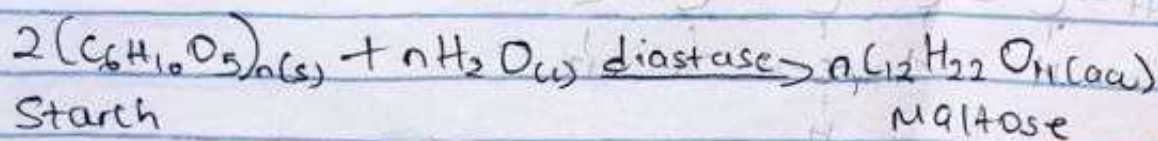 2(C₆H₁₀O₅)ₙ(s) + nH₂O(l) diastase→ nC₁₂H₂₂O₁₁(aq)
Starch Maltose